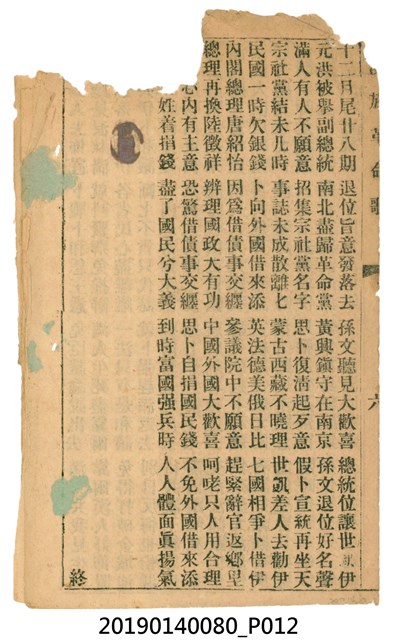 族革命歌 六
十二月尾廿八期 退位旨意發落去 孫文聽見大歡喜 總統位讓世凱伊
元洪被舉副總統 南北盡歸革命黨 黃興鎮守在南京 孫文退位好名聲
滿人有人不願意 招集宗社黨名字 思卜復淸起歹意 假卜宣統再坐天
宗社黨結未几時 事誌未成散離七 蒙古西藏不曉理 世凱差人去勸伊
民國一時欠銀錢 卜向外國借來添 英法德美俄日比 七國相爭卜借伊
內閣總理唐紹怡 因爲借債事交纏 參議院中不願意 趕緊辭官返鄉里
總理再換陸徵祥 辨理國政大有功 中國外國大歡喜 呵咾只人用合理
心內有主意 恐驚借債事交纏 思卜自捐國民錢 不免外國借來添
姓着捐錢 盡了國民兮大義 到時富國强兵時 人人體面眞揚氣
終
20190140080_P012